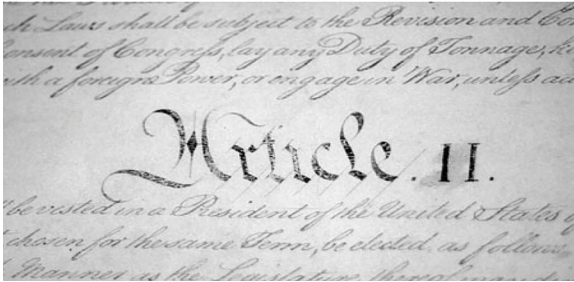 ch Laws shall be subject to the Revision and Con
onsent of Congress, lay any Duty of Tonnage, ke
with a foreign Power, or engage in War, unless ac
Article. II.
be vested in a President of the United States of
chosen for the same Term, be elected, as follows
Manner as the Legislature thereof may